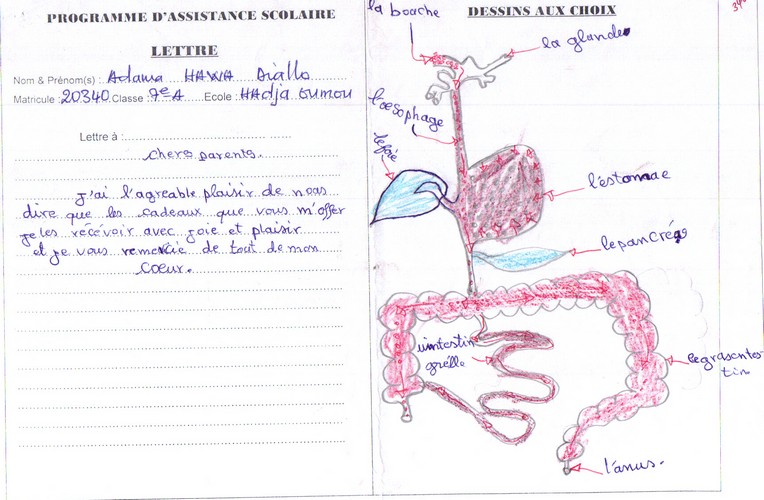 PROGRAMME D'ASSISTANCE SCOLAIRE
LETTRE
Nom & Prénom(s) : Adama HAWA Diallo
Matricule : 20340 Classe 7e A Ecole : HAdja Oumou
Lettre à :
chers parents.
j'ai l'agreable plaisir de nous
dire que les cadeaux que vous m'offer
je les récévoir avec joie et plaisir
et je vous remercie de tout de mon
coeur.
DESSINS AUX CHOIX
la bouche
la glande
l'oesophage
le foie
l'estomac
le pancréas
uintestin
grélle
le grasentes
tin
l'anus.